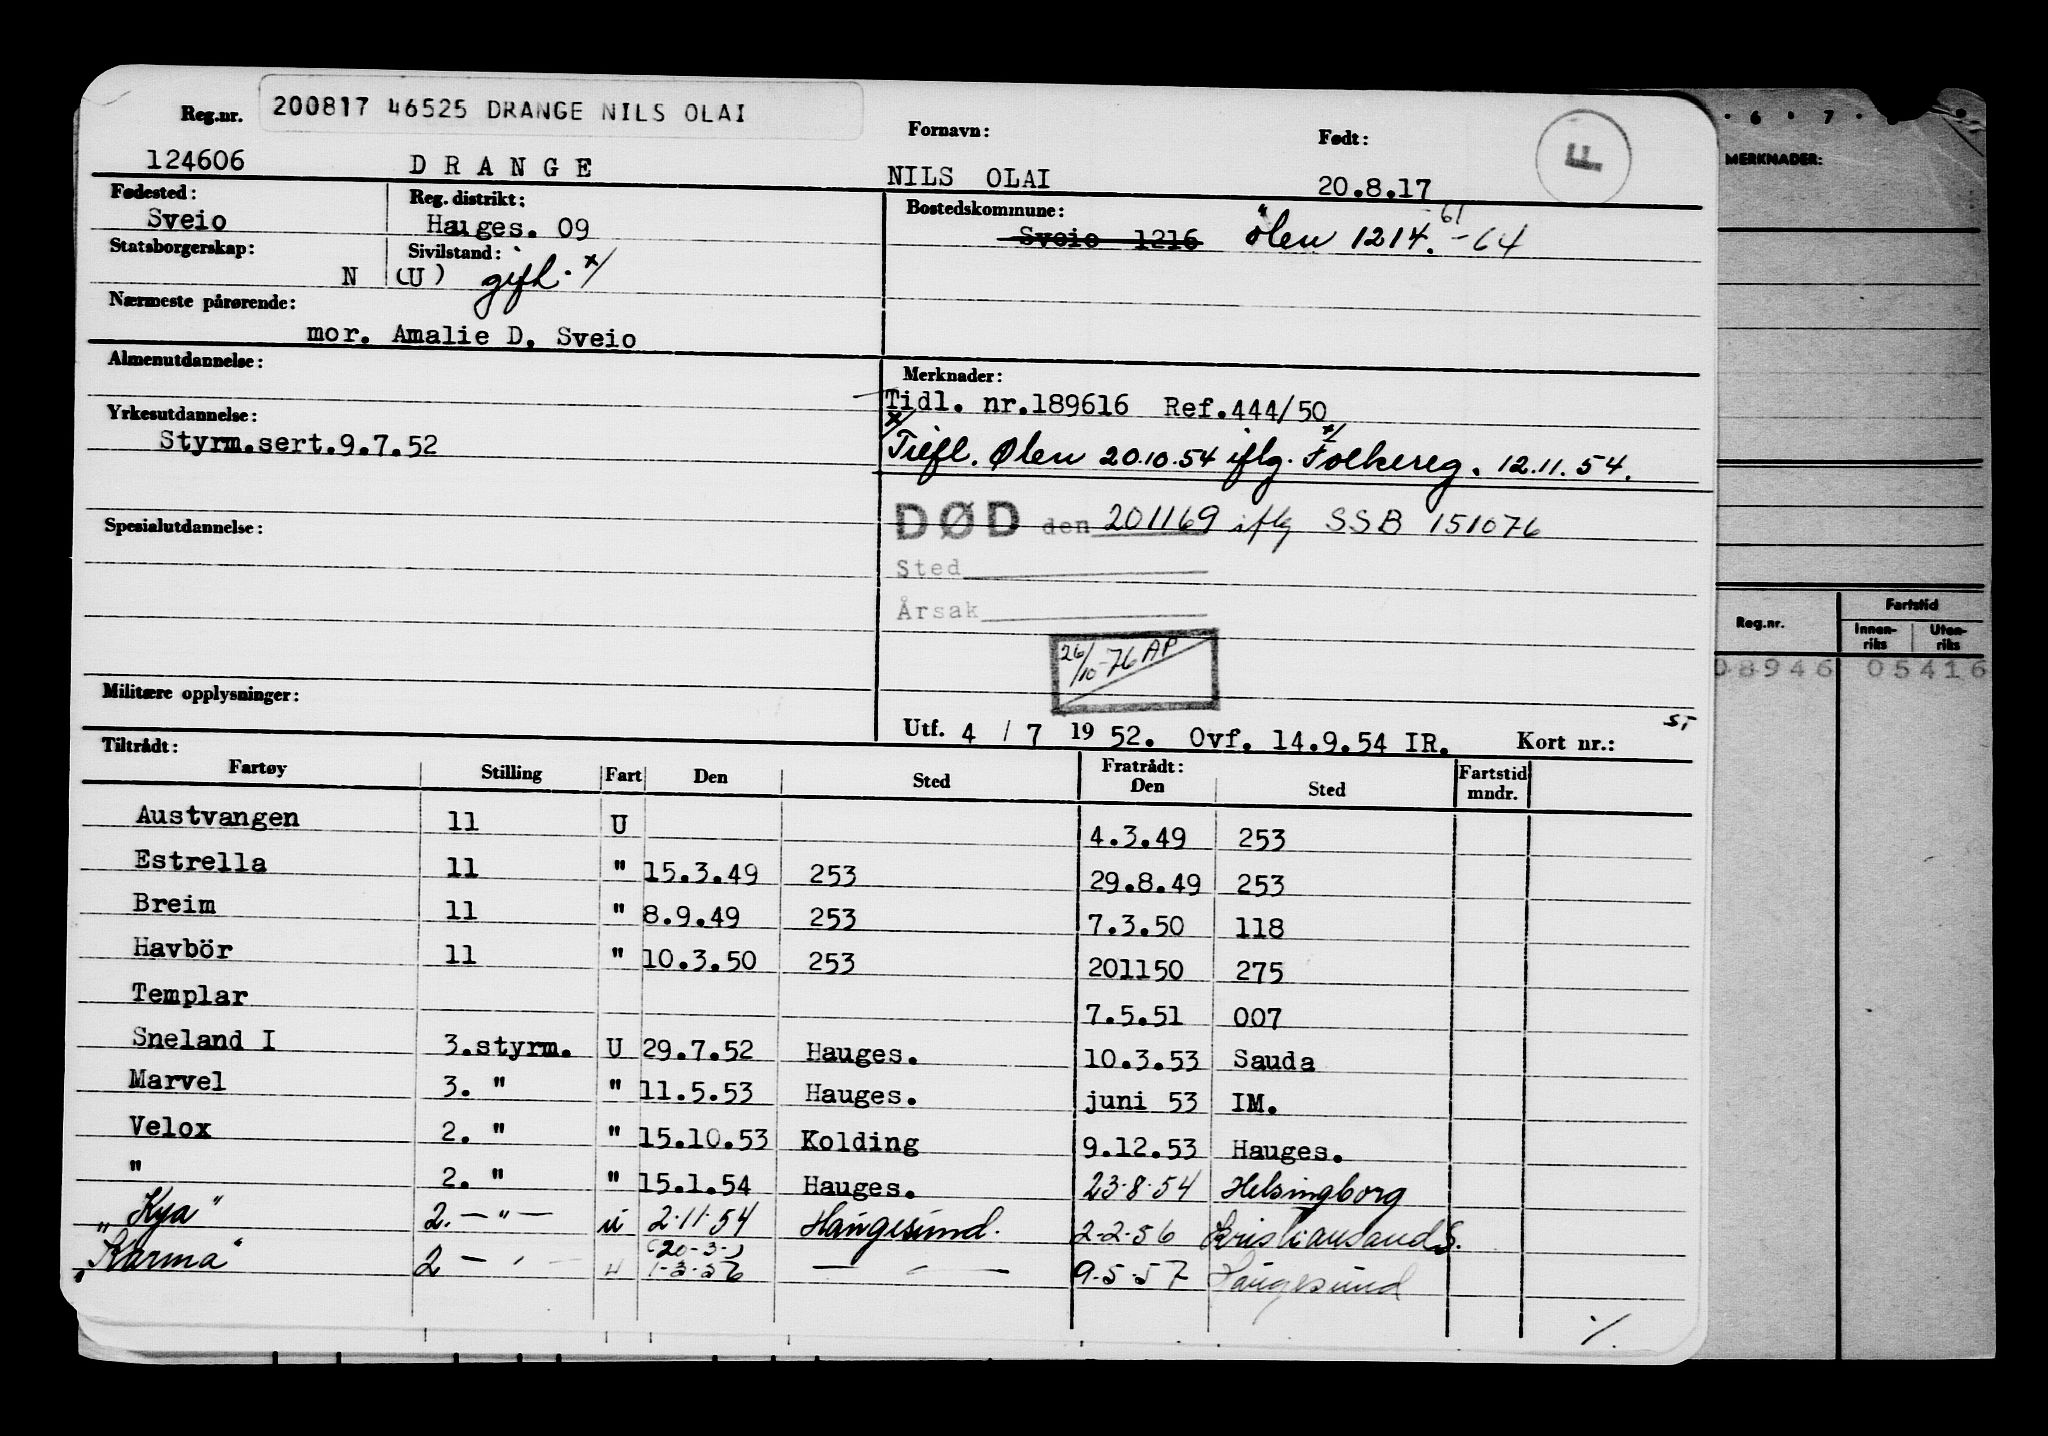 Reg.nr. 200817 46525 DRANGE NILS OLAI Fornavn: Født: F
124606 DRANGE NILS OLAI 20.8.17
Fødested: Reg. distrikt: Bostedskommune:
Sveio Hauges. 09 Sveio 1216 Ølen 1214. -61 -64
Statsborgerskap: Sivilstand:
N (U) gift. x/
Nærmeste pårørende:
mor. Amalie D. Sveio
Almenutdannelse: Merknader:
Tidl. nr.189616 Ref.444/50
Yrkesutdannelse:
Styrm.sert.9.7.52
x/ Tilfl. Ølen 20.10.54 iflg. Folkereg. x/ 12.11.54.
Spesialutdannelse:
DØD den 201169 iflg SSB 151076
Sted
Årsak
26/10-76 AP
Militære opplysninger:
Utf. 4 / 7 1952. Ovf. 14.9.54 IR. Kort nr.:
Tiltrådt: Fratrådt:
Fartøy Stilling Fart Den Sted Den Sted Fartstid mndr.
Austvangen 11 U 4.3.49 253
Estrella 11 " 15.3.49 253 29.8.49 253
Breim 11 " 8.9.49 253 7.3.50 118
Havbör 11 " 10.3.50 253 201150 275
Templar 7.5.51 007
Sneland I 3.styrm. U 29.7.52 Hauges. 10.3.53 Sauda
Marvel 3. " " 11.5.53 Hauges. juni 53 IM.
Velox 2. " " 15.10.53 Kolding 9.12.53 Hauges.
" 2. " " 15.1.54 Hauges. 23.8.54 Helsingborg
"Kya" 2. -"- u 2.11.54 Haugesund. 2-2-56 Kristiansand S.
(20-3-)
"Karma" 2 - " - " 1-3-56 - " - 9-5-57 Haugesund
%
6 7
MERKNADER:
Reg.nr. Fartstid
Innenriks Utenriks
08946 05416